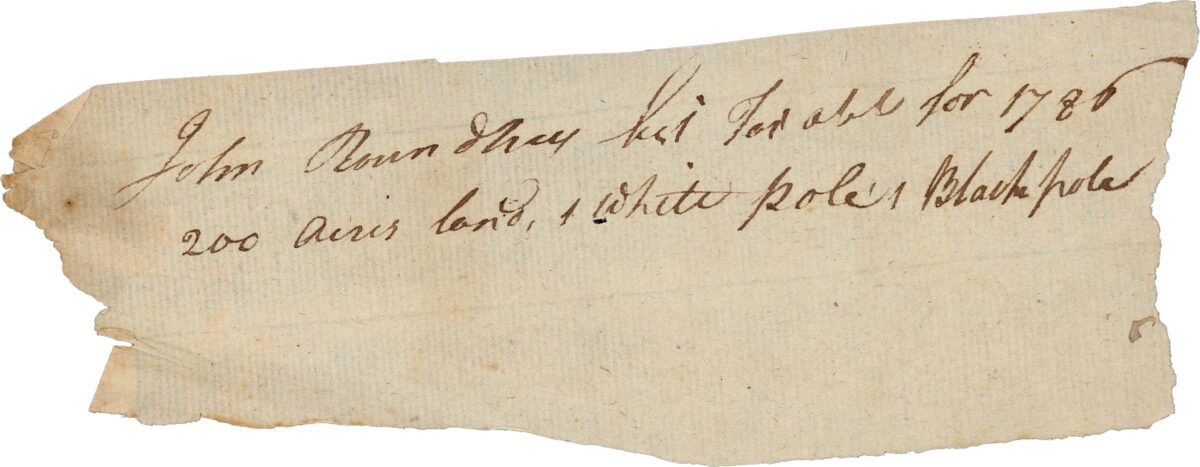 John Roundtree his Taxable for 1786
200 acres land, 1 White pole, 1 Black pole